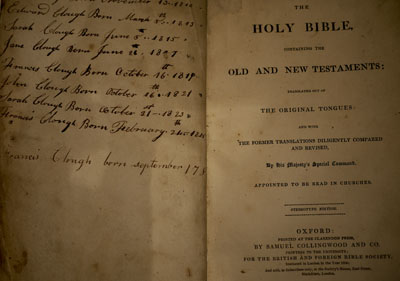 Edward Clough Born March
Sarah Clough Born June 5th 1815
Jane Clough Born June
Frances Clough Born October 16th 1819
John Clough Born October 21
Sarah Clough Born October 21st 1823
Clough Born February 24th
Francis Clough born september 17
THE
HOLY BIBLE,
CONTAINING THE
OLD AND NEW TESTAMENTS:
TRANSLATED OUT OF
THE ORIGINAL TONGUES:
AND WITH
THE FORMER TRANSLATIONS DILIGENTLY COMPARED
AND REVISED,
By His Majesty's Special Command.
APPOINTED TO BE READ IN CHURCHES.
STEREOTYPE EDITION.
OXFORD:
PRINTED AT THE CLARENDON PRESS,
BY SAMUEL COLLINGWOOD AND CO.
PRINTERS TO THE UNIVERSITY;
FOR THE BRITISH AND FOREIGN BIBLE SOCIETY,